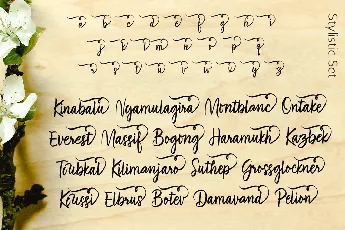 a b c d e f g h i
j k l m n o p q
r s t u v w x y z
Kinabalu Nyamulagira Montblanc Ontake
Everest Massif Bogong Haramukh Kazbek
Toubkal Kilimanjaro Suthep Grossglockner
Koussi Elbrus Botev Damavand Pelion
Stylistic Set